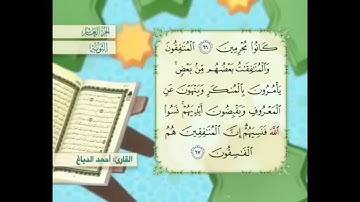 الجزء العاشر
التوبة
كَانُوا۟ مُجْرِمِينَ ٦٦ ٱلْمُنَٰفِقُونَ
وَٱلْمُنَٰفِقَٰتُ بَعْضُهُم مِّنۢ بَعْضٍ ۚ
يَأْمُرُونَ بِٱلْمُنكَرِ وَيَنْهَوْنَ عَنِ
ٱلْمَعْرُوفِ وَيَقْبِضُونَ أَيْدِيَهُمْ ۚ نَسُوا۟
ٱللَّهَ فَنَسِيَهُمْ ۗ إِنَّ ٱلْمُنَٰفِقِينَ هُمُ
ٱلْفَٰسِقُونَ ٦٧
القارئ: أحمد الدباغ